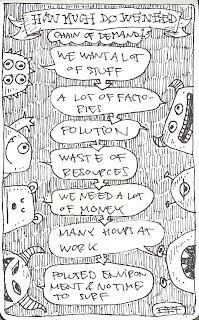 HOW MUCH DO WE NEED
CHAIN OF DEMAND!
WE WANT A LOT
OF STUFF
A LOT OF FACTO-
RIES
POLUTION
WASTE OF
RESOURCES
WE NEED A LOT
OF MONEY
MANY HOURS AT
WORK
POLUTED ENVIRON
MENT & NO TIME
TO SURF